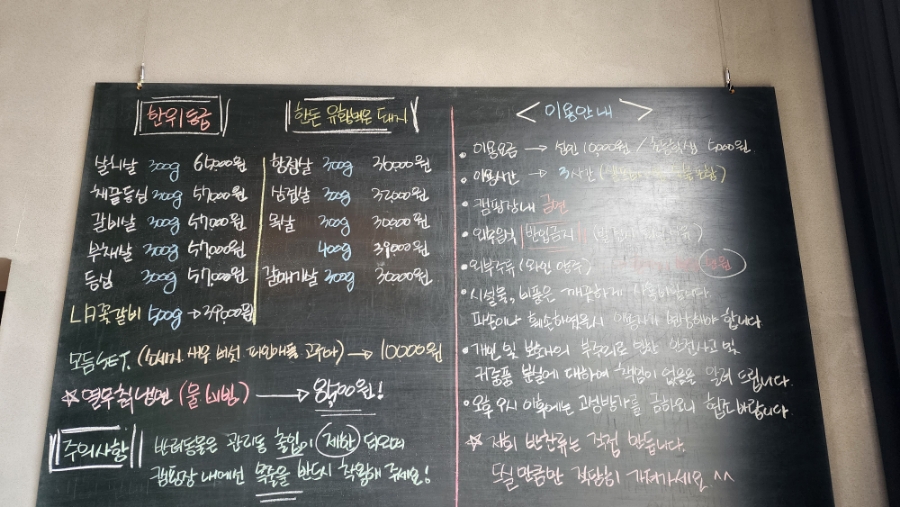 한우 등급
날치살 300g 65,000원
채끝등심 300g 57,000원
갈비살 300g 57,000원
부채살 300g 57,000원
등심 300g 57,000원
LA꽃갈비 500g → 39,000원
한돈 유황먹은 돼지
항정살 300g 36,000원
삼겹살 300g 32,000원
목살 300g 30,000원
400g 39,000원
갈매기살 300g 36,000원
모듬SET. (소세지 새우 버섯 파인애플 고구마) → 10000원
☆ 열무김치냉면 (물 비빔) → 8,500원!
주의사항
반려동물은 관리동 출입이 제한 되오며
캠핑장 내에선 목줄을 반드시 착용해 주세요!
< 이용안내 >
• 이용요금 → 성인 10,000원 / 초등학생 5,000원
• 이용시간 → 3시간
• 캠핑장내 금연
• 외부음식 반입금지
• 외부주류 (와인 양주) 만원
• 시설물, 비품은 깨끗하게 사용바랍니다
파손이나 훼손하였을시 이용자가 배상해야 합니다
• 개인 및 보호자의 부주의로 인한 안전사고 및
귀중품 분실에 대하여 책임이 없음을 알려 드립니다.
• 오후 9시 이후에는 고성방가를 금하오니 협조바랍니다.
☆ 저희 반찬류는 직접 만듭니다.
드실만큼만 적당히 가져가세요 ^^